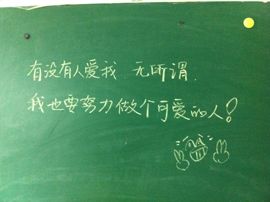 有没有人爱我 无所谓.
我也要努力做个可爱的人!